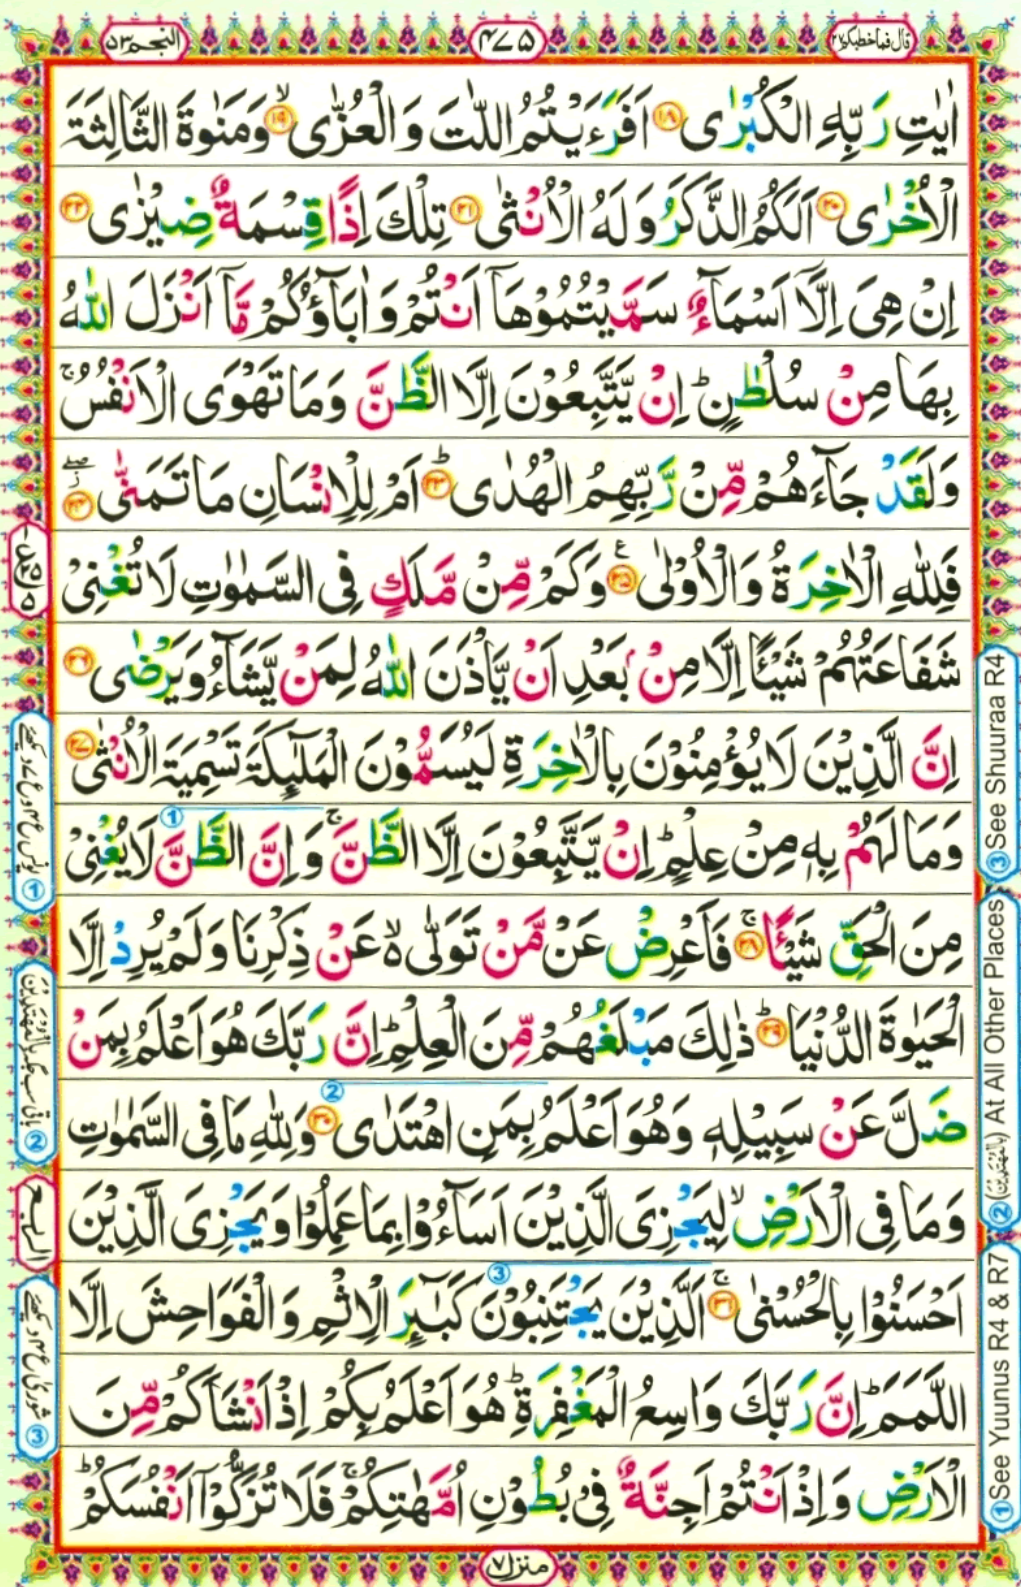 النجم ٥٣
٤٧٥
قال فما خطبكم ٢٧
اٰيٰتِ رَبِّهِ الْكُبْرٰى ﴿١٨﴾ اَفَرَءَيْتُمُ اللّٰتَ وَ الْعُزّٰى ۙ﴿١٩﴾ وَمَنٰوةَ الثَّالِثَةَ
الْاُخْرٰى ﴿٢٠﴾ اَلَكُمُ الذَّكَرُ وَلَهُ الْاُنْثٰى ﴿٢١﴾ تِلْكَ اِذًا قِسْمَةٌ ضِيْزٰى ﴿٢٢﴾
اِنْ هِىَ اِلَّاۤ اَسْمَآءٌ سَمَّيْتُمُوْهَاۤ اَنْتُمْ وَ اٰبَآؤُكُمْ مَّاۤ اَنْزَلَ اللّٰهُ
بِهَا مِنْ سُلْطٰنٍ ؕ اِنْ يَّتَّبِعُوْنَ اِلَّا الظَّنَّ وَمَا تَهْوَى الْاَنْفُسُ ۚ
وَلَقَدْ جَآءَهُمْ مِّنْ رَّبِّهِمُ الْهُدٰى ؕ﴿٢٣﴾ اَمْ لِلْاِنْسَانِ مَا تَمَنّٰى ۖ﴿٢٤﴾
فَلِلّٰهِ الْاٰخِرَةُ وَالْاُوْلٰى ﴿٢٥﴾ ع وَكَمْ مِّنْ مَّلَكٍ فِى السَّمٰوٰتِ لَا تُغْنِىْ
شَفَاعَتُهُمْ شَيْئًا اِلَّا مِنْۢ بَعْدِ اَنْ يَّاْذَنَ اللّٰهُ لِمَنْ يَّشَآءُ وَيَرْضٰى ﴿٢٦﴾
اِنَّ الَّذِيْنَ لَا يُؤْمِنُوْنَ بِالْاٰخِرَةِ لَيُسَمُّوْنَ الْمَلٰٓئِكَةَ تَسْمِيَةَ الْاُنْثٰى ﴿٢٧﴾
وَمَا لَهُمْ بِهٖ مِنْ عِلْمٍ ؕ اِنْ يَّتَّبِعُوْنَ اِلَّا الظَّنَّ ۚ وَاِنَّ الظَّنَّ ① لَا يُغْنِىْ
مِنَ الْحَقِّ شَيْئًا ۚ﴿٢٨﴾ فَاَعْرِضْ عَنْ مَّنْ تَوَلّٰى ۙ۬ عَنْ ذِكْرِنَا وَلَمْ يُرِدْ اِلَّا
الْحَيٰوةَ الدُّنْيَا ؕ﴿٢٩﴾ ذٰلِكَ مَبْلَغُهُمْ مِّنَ الْعِلْمِ ؕ اِنَّ رَبَّكَ هُوَ اَعْلَمُ بِمَنْ
ضَلَّ عَنْ سَبِيْلِهٖ وَهُوَ اَعْلَمُ بِمَنِ اهْتَدٰى ② ﴿٣٠﴾ وَلِلّٰهِ مَا فِى السَّمٰوٰتِ
وَمَا فِى الْاَرْضِ ۙ لِيَجْزِىَ الَّذِيْنَ اَسَآءُوْا بِمَا عَمِلُوْا وَيَجْزِىَ الَّذِيْنَ
اَحْسَنُوْا بِالْحُسْنٰى ۚ﴿٣١﴾ اَلَّذِيْنَ يَجْتَنِبُوْنَ ③ كَبٰٓئِرَ الْاِثْمِ وَ الْفَوَاحِشَ اِلَّا
اللَّمَمَ ؕ اِنَّ رَبَّكَ وَاسِعُ الْمَغْفِرَةِ ؕ هُوَ اَعْلَمُ بِكُمْ اِذْ اَنْشَاَكُمْ مِّنَ
الْاَرْضِ وَاِذْ اَنْتُمْ اَجِنَّةٌ فِىْ بُطُوْنِ اُمَّهٰتِكُمْ ۚ فَلَا تُزَكُّوْۤا اَنْفُسَكُمْ ؕ
منزل ٧
① See Yuunus R4 & R7
② (بِالْمُهْتَدِيْنَ) At All Other Places
③ See Shuuraa R4
① یونس ع ۴ و ع ۷ دیکھئے
② باقی سب جگہ بِالْمُهْتَدِيْنَ
③ شوریٰ ع ۴ دیکھئے